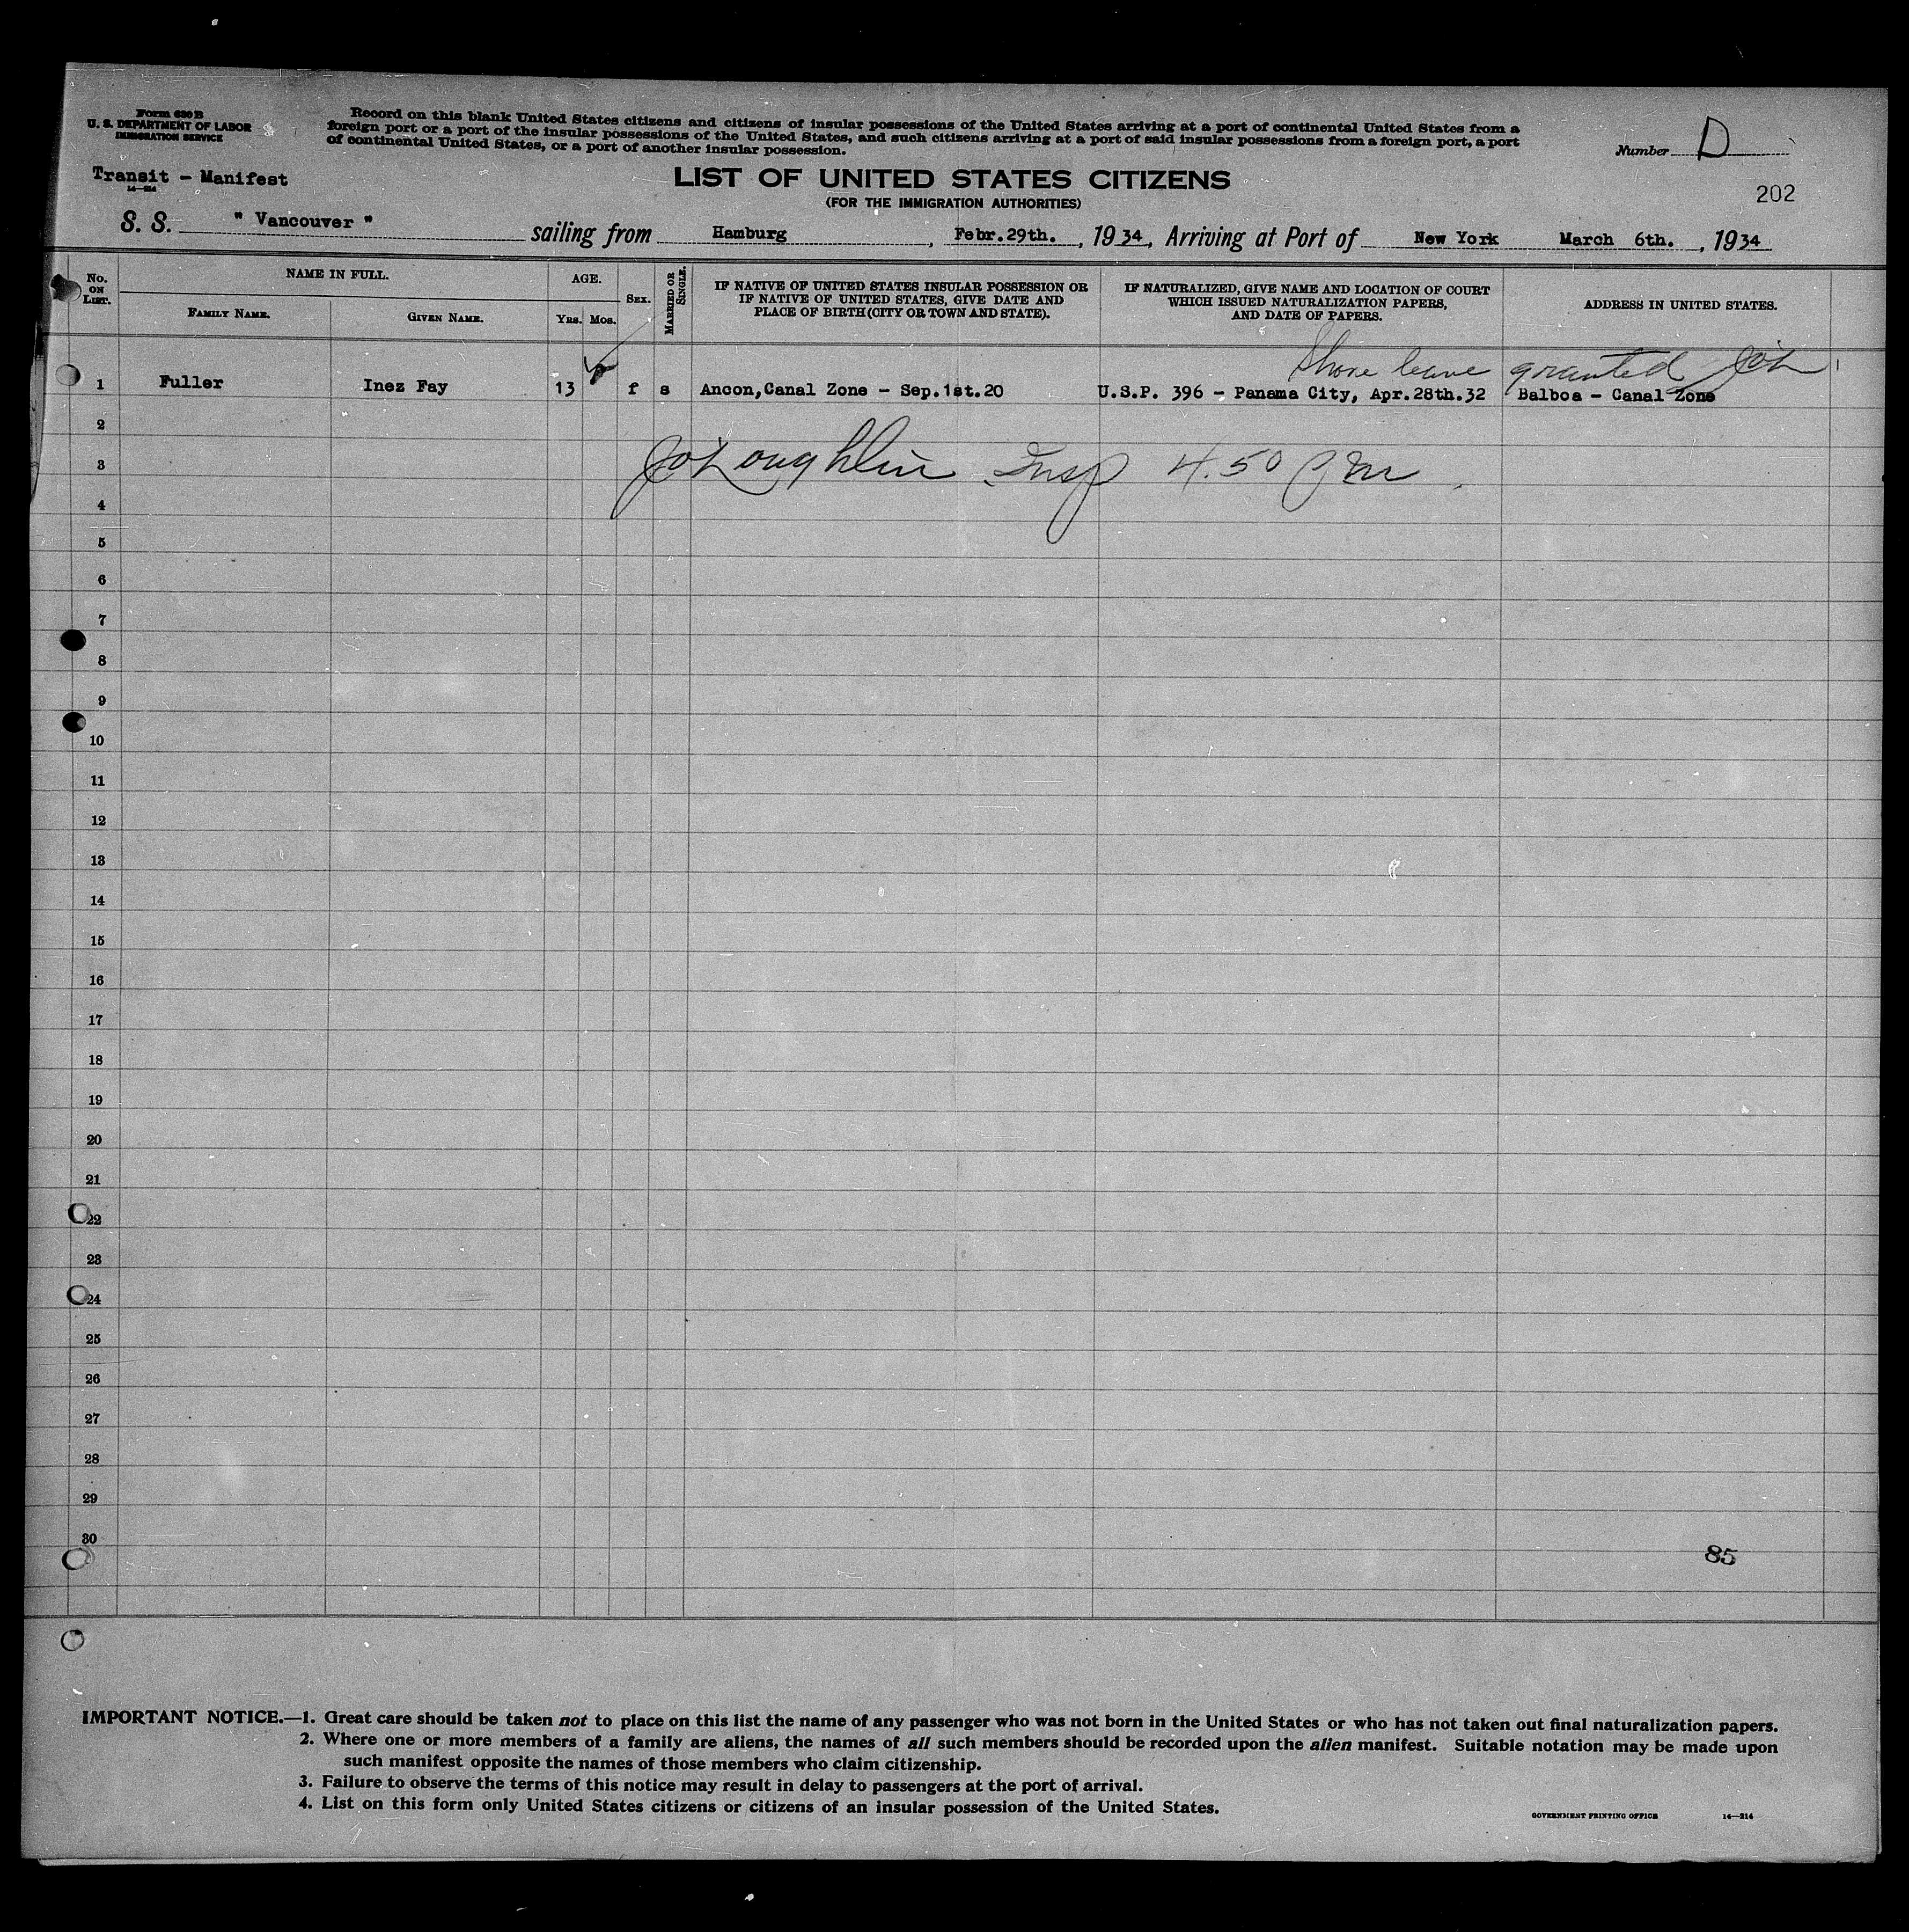 Form 630 B
U. S. DEPARTMENT OF LABOR
IMMIGRATION SERVICE
Record on this blank United States citizens and citizens of insular possessions of the United States arriving at a port of continental United States from a
foreign port or a port of the insular possessions of the United States, and such citizens arriving at a port of said insular possessions from a foreign port, a port
of continental United States, or a port of another insular possession.
Number D
Transit - Manifest
14—214
LIST OF UNITED STATES CITIZENS
(FOR THE IMMIGRATION AUTHORITIES)
202
S. S. " Vancouver " sailing from Hamburg, Febr.29th., 1934, Arriving at Port of New York March 6th., 1934
No. ON LIST.
NAME IN FULL.
FAMILY NAME.
GIVEN NAME.
AGE.
YRS. MOS.
SEX.
MARRIED OR SINGLE.
IF NATIVE OF UNITED STATES INSULAR POSSESSION OR
IF NATIVE OF UNITED STATES, GIVE DATE AND
PLACE OF BIRTH (CITY OR TOWN AND STATE).
IF NATURALIZED, GIVE NAME AND LOCATION OF COURT
WHICH ISSUED NATURALIZATION PAPERS,
AND DATE OF PAPERS.
ADDRESS IN UNITED STATES.
Shore leave granted JO'L
1 Fuller Inez Fay 13 f s Ancon,Canal Zone - Sep.1st.20 U.S.P. 396 - Panama City, Apr.28th.32 Balboa - Canal Zone
2
JO'Loughlin Insp 4.50 PM
3
4
5
6
7
8
9
10
11
12
13
14
15
16
17
18
19
20
21
22
23
24
25
26
27
28
29
30
85
IMPORTANT NOTICE.—1. Great care should be taken not to place on this list the name of any passenger who was not born in the United States or who has not taken out final naturalization papers.
2. Where one or more members of a family are aliens, the names of all such members should be recorded upon the alien manifest. Suitable notation may be made upon
such manifest opposite the names of those members who claim citizenship.
3. Failure to observe the terms of this notice may result in delay to passengers at the port of arrival.
4. List on this form only United States citizens or citizens of an insular possession of the United States.
GOVERNMENT PRINTING OFFICE 14—214